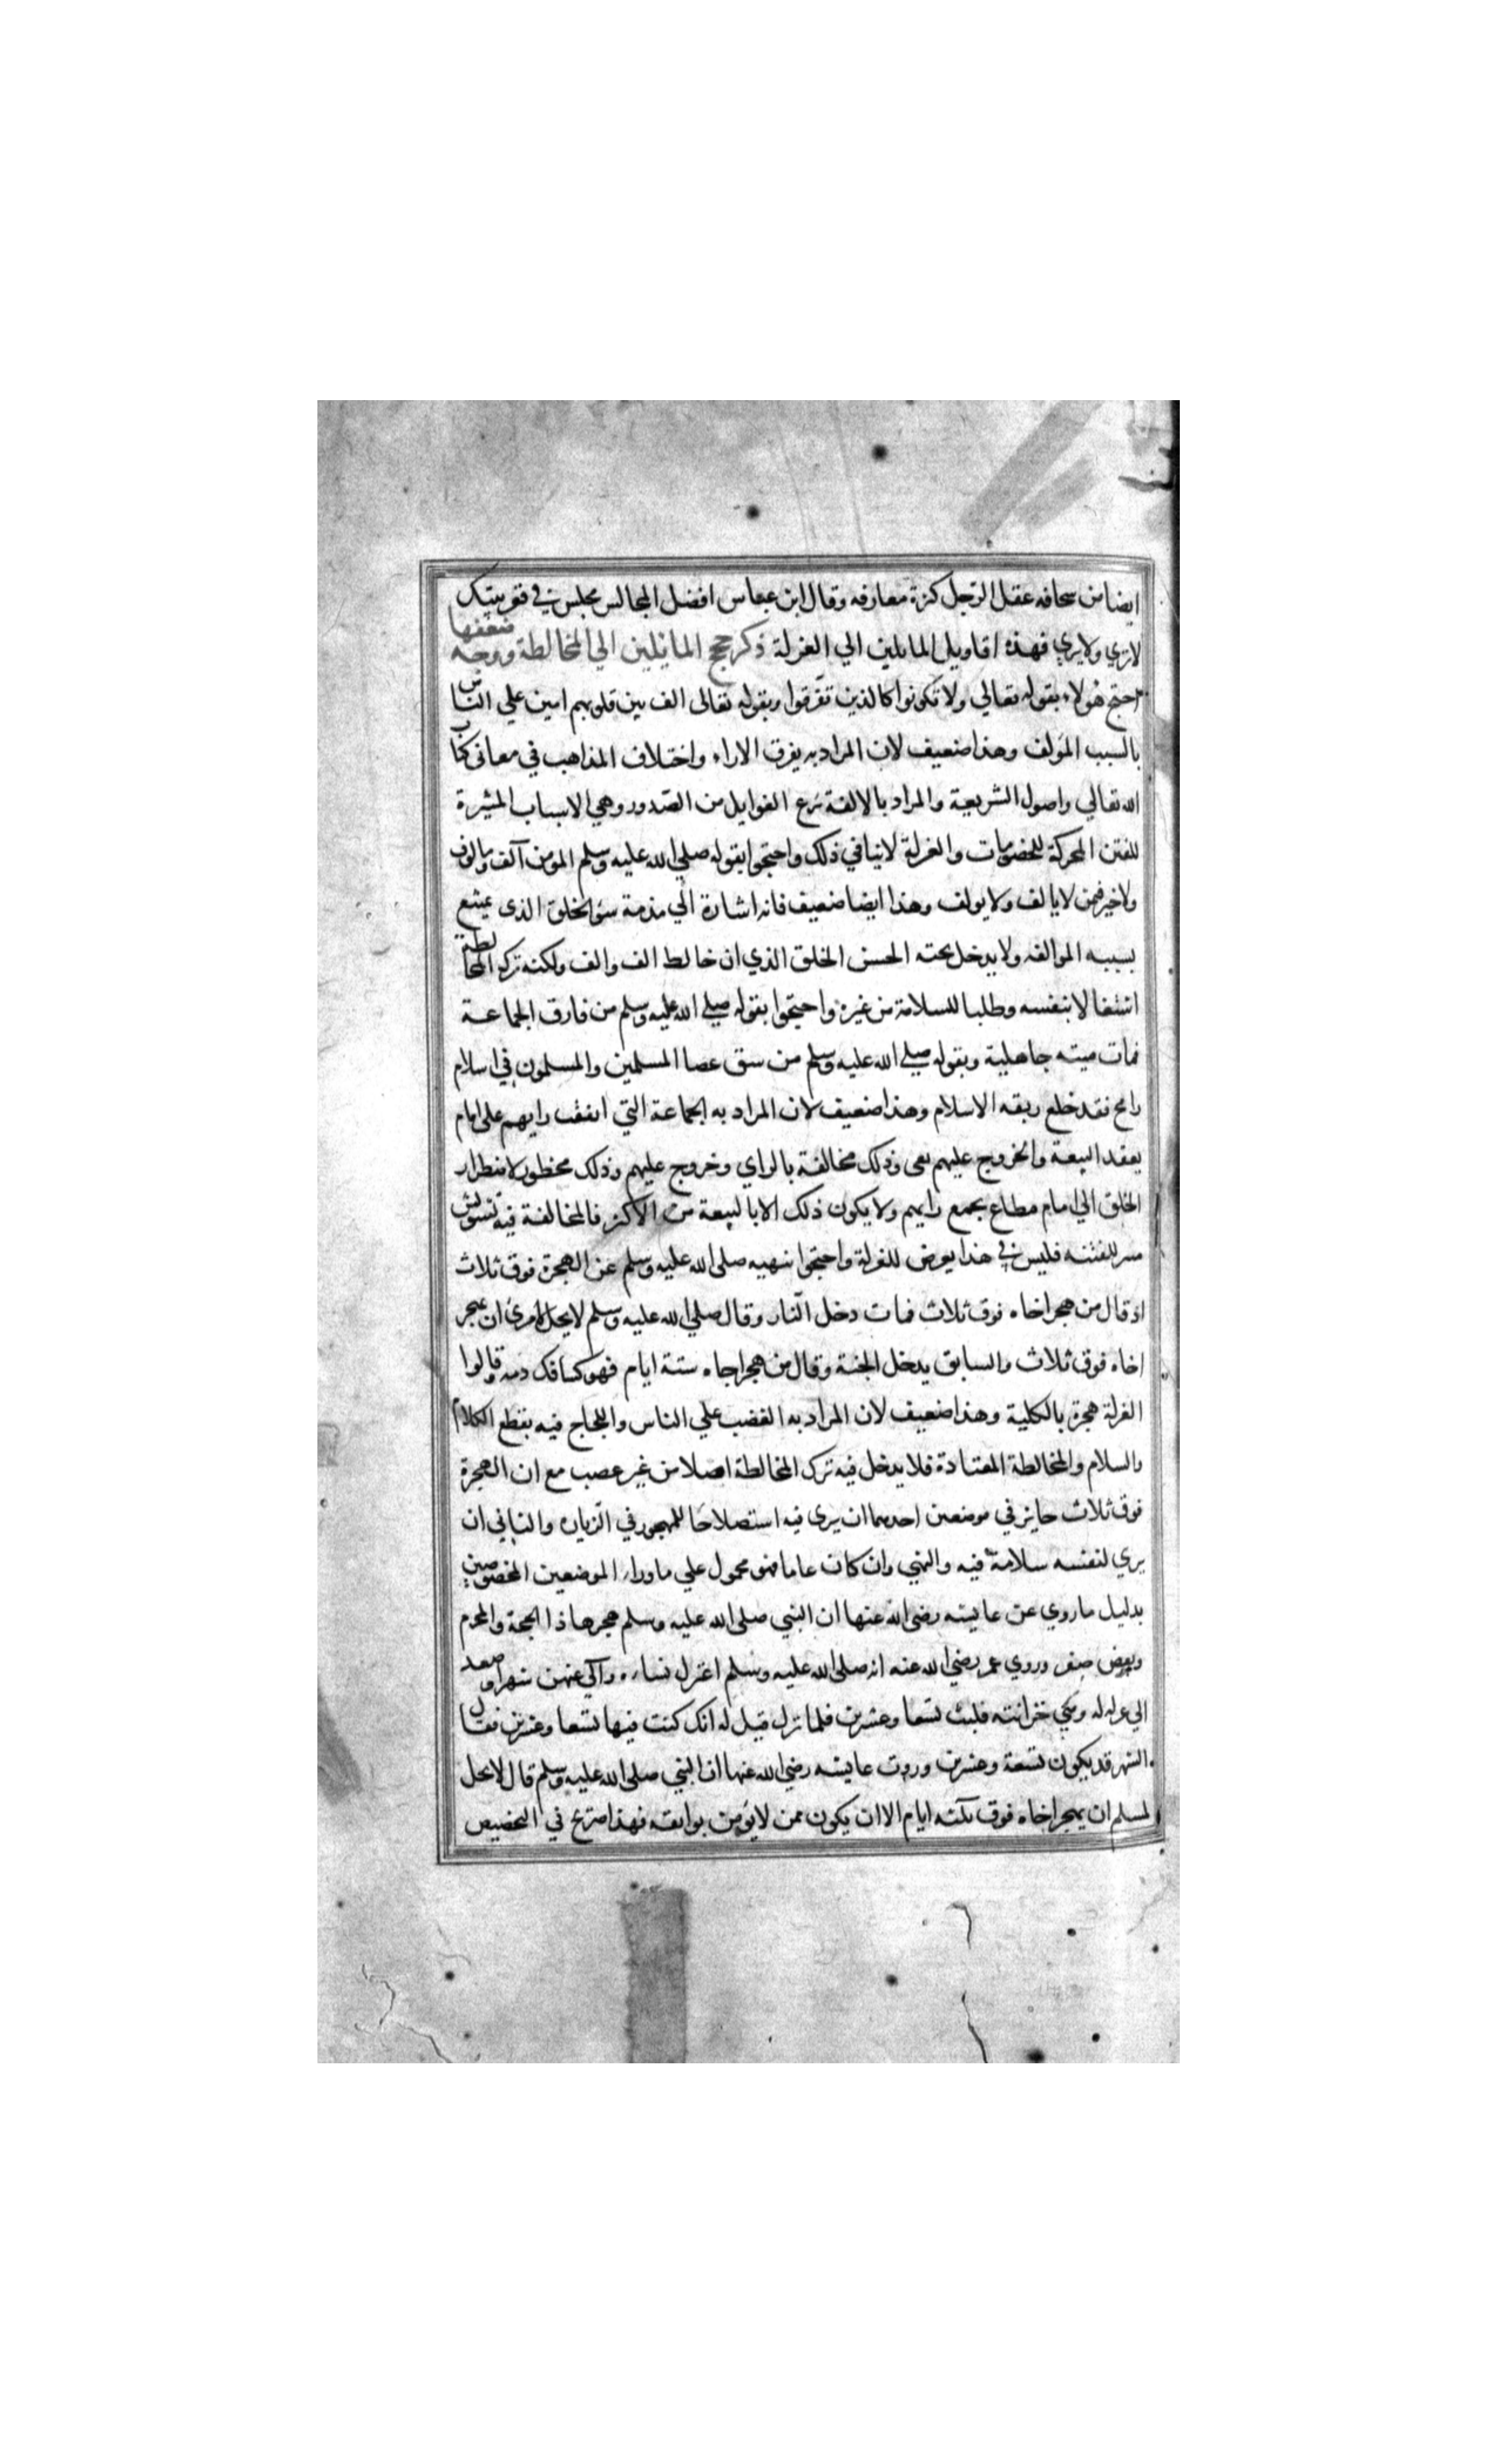 ايضا من سخافه عقل الرجل كثرة معارفه وقال ابن عباس افضل المجالس مجلس في قعر بيتك
لا تري ولا يري فهذه اقاويل المايلين الي العزلة ذكر حجج المائلين الي المخالطة ووجه ضعفها
احتج هولاء بقوله تعالي ولا تكونوا كالذين تفرقوا وبقوله تعالى الف بين قلوبهم امين علي الناس
بالسبب المولف وهذا ضعيف لان المراد به يفرق الاراء واختلاف المذاهب في معانى كتاب
الله تعالي واصول الشريعة والمراد بالالفة نزع الغوايل من الصدور وهي الاسباب المثيرة
للفتن المحركة للخصومات والعزلة لا تنافي ذلك واحتجوا بقوله صلي الله عليه وسلم المومن آلف مالوف
ولا خير فيمن لا يالف ولا يولف وهذا ايضا ضعيف فانه اشارة الي مذمة سو الخلق الذى يمتنع
بسببه الموالفه ولا يدخل تحته الحسن الخلق الذي ان خالط الف والف ولكنه ترك المخالطة
اشتغالا بنفسه وطلبا للسلامة من غيره واحتجوا بقوله صلي الله عليه وسلم من فارق الجماعة
فمات ميته جاهلية وبقوله صلي الله عليه وسلم من سق عصا المسلمين والمسلمون في اسلام
رامح فقد خلع ربقه الاسلام وهذا ضعيف لان المراد به الجماعة التي اتفقت رايهم على امام
يعقد البيعة والخروج عليهم بغى وذلك مخالفة بالراي وخروج عليهم وذلك محظور لاضطرار
الخلق الي امام مطاع يجمع رايهم ولا يكون ذلك الا بالبيعة من الاكثر فالمخالفة فيه تشويش
مسر للفتنه فليس في هذا يعرض للعزلة واحتجوا بنهيه صلى الله عليه وسلم عن الهجرة فوق ثلاث
اذ قال من هجر اخاه فوق ثلاث فمات دخل النار وقال صلي الله عليه وسلم لا يحل لامرئ ان يهجر
اخاه فوق ثلاث والسابق يدخل الجنة وقال من هجر اخاه ستة ايام فهو كسافك دمه قالوا
العزلة هجرة بالكلية وهذا ضعيف لان المراد به الغضب علي الناس واللجاج فيه بقطع الكلام
والسلام والمخالطة المعتادة فلا يدخل فيه ترك المخالطة اصلا من غير عصب مع ان الهجرة
فوق ثلاث جايز في موضعين احدهما ان يرى فيه استصلاحا للمهجور في الزياره والثاني ان
يري لنفسه سلامة فيه والنهي وان كان عاما فهو محمول علي ماوراء الموضعين المخصوصين
بدليل ما روي عن عايشه رضى الله عنها ان النبي صلى الله عليه وسلم هجرها ذا الحجة والمحرم
وبعض صفر وروي عمر رضي الله عنه انه صلى الله عليه وسلم اعتزل نساءه وآلى عنهن شهرا وصعد
الي خزانته فلبث تسعا وعشرين فلما نزل قيل له انك كنت فيها تسعا وعشرين فقال
الشهر قد يكون تسعة وعشرين وروت عايشه رضي الله عنها ان النبي صلى الله عليه وسلم قال لا يحل
لمسلم ان يهجر اخاه فوق ثلثه ايام الا ان يكون ممن لا يؤمن بوايقه فهذا صريح في التخصيص